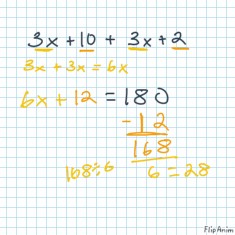 3x + 10 + 3x + 2
3x + 3x = 6x
6x + 12 = 180
- 12
168
168 ÷ 6
6 = 28
FlipAnim